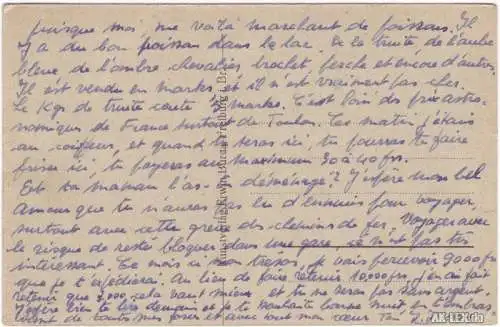 puisque moi, me voilà marchand de poissons. Il
y a du bon poisson dans le lac, de la truite de l'aube
bleue de l'ombre chevalier, brochet, perche et encore d'autres.
Il est vendu en marks, et il n'est vraiment pas cher.
Le Kgr de truite coute marks. C'est loin des prix astro-
nomiques de France surtout de Toulon. Ce matin j'étais
au coiffeur, et quand tu seras ici, tu pourras te faire
friser ici, tu payeras au maximum 30 à 40 frs.
Est ta maman l'as- déménagé? J'espère mon bel
Amour que tu n'auras pas eu d'ennuis pour voyager,
surtout avec cette grève des chemins de fer. Voyager avec
le risque de resté bloquer dans une gare, ce n'est pas très
intéressant. Ce mois ci mon tresor, je vais percevoir 9000 frs
que je t'expédierai. Au lieu de faire retenir 10000 frs, j'en ai fait
retenir que 5,000, cela vaut mieux et tu ne seras pas sans argent.
J'espère bien te lire demain et je te souhaite bonne nuit en t'embras
sant de toutes mes forces et avec tout mon cœur
AK-LEX.de